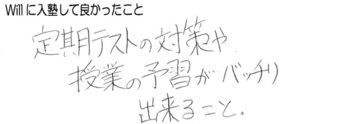 Willに入塾して良かったこと
定期テストの対策や
授業の予習がバッチリ
出来ること.